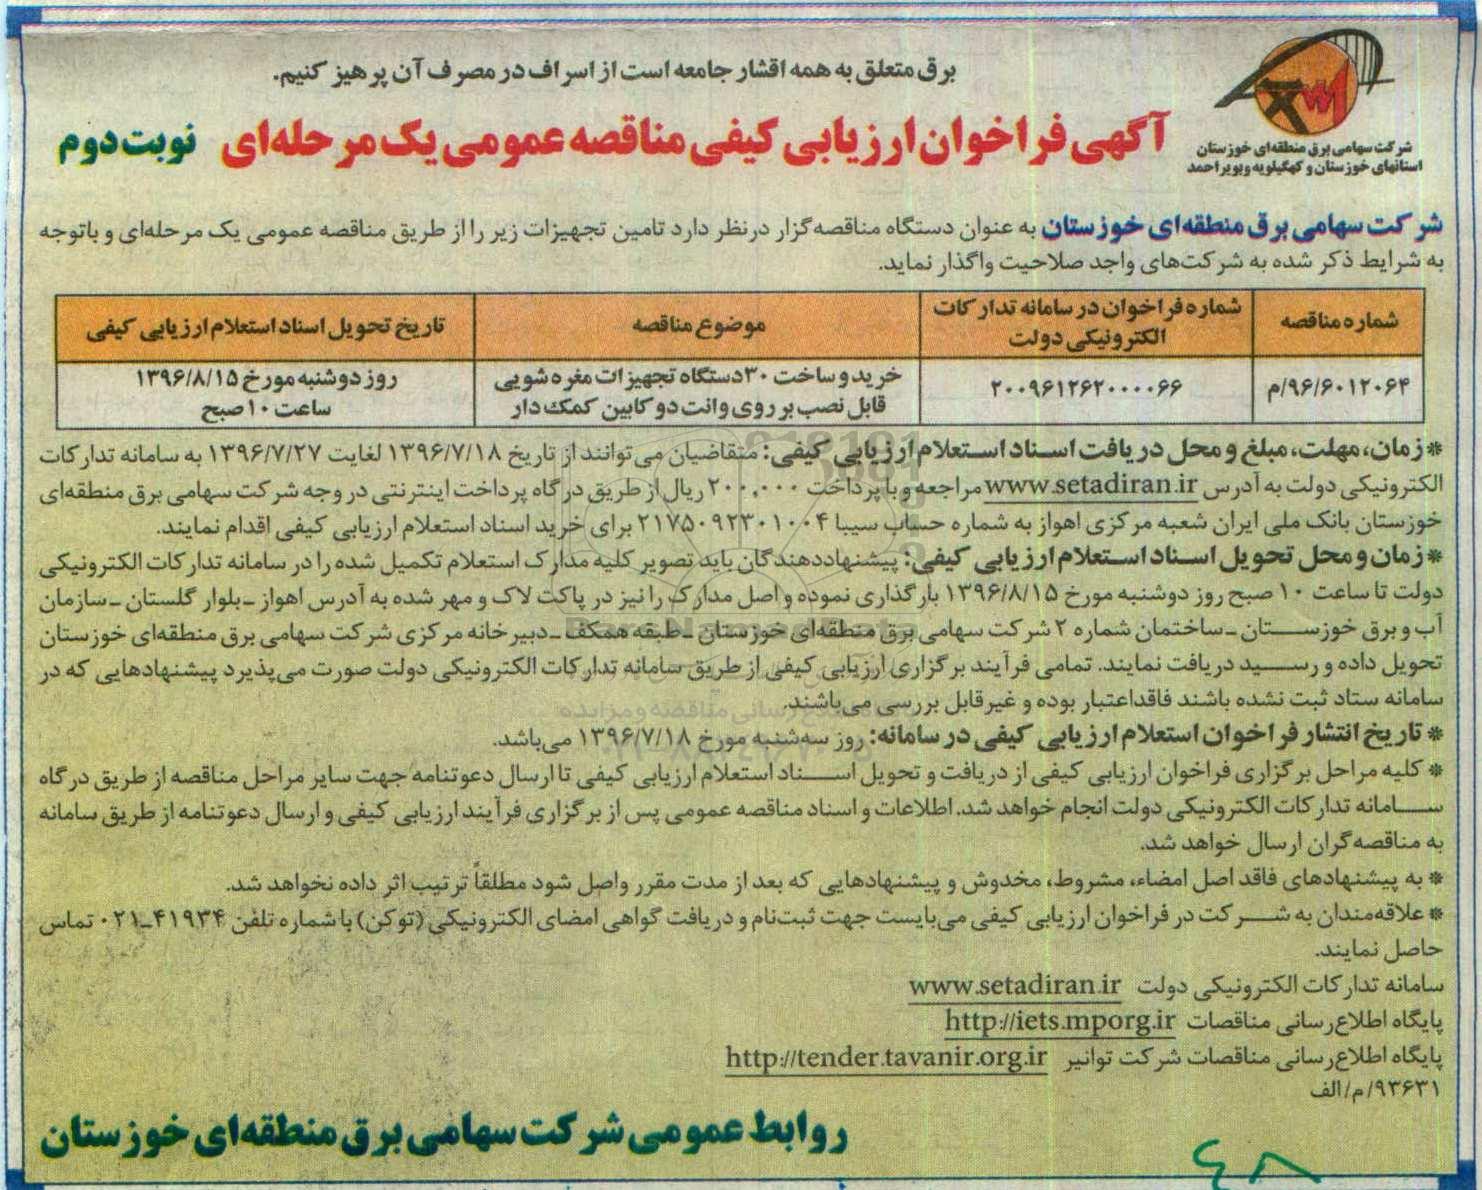 برق متعلق به همه اقشار جامعه است از اسراف در مصرف آن پرهیز کنیم.
شرکت سهامی برق منطقه‌ای خوزستان
استانهای خوزستان و کهگیلویه وبویراحمد
آگهی فراخوان ارزیابی کیفی مناقصه عمومی یک مرحله‌ای نوبت دوم
شرکت سهامی برق منطقه‌ای خوزستان به عنوان دستگاه مناقصه‌گزار درنظر دارد تامین تجهیزات زیر را از طریق مناقصه عمومی یک مرحله‌ای و باتوجه
به شرایط ذکر شده به شرکت‌های واجد صلاحیت واگذار نماید.
شماره مناقصه
شماره فراخوان در سامانه تدارکات
الکترونیکی دولت
موضوع مناقصه
تاریخ تحویل اسناد استعلام ارزیابی کیفی
۹۶/۶۰۱۲۰۶۴/م
۲۰۰۹۶۱۲۶۲۰۰۰۰۶۶
خرید و ساخت ۳۰دستگاه تجهیزات مقره شویی
قابل نصب بر روی وانت دو کابین کمک دار
روز دوشنبه مورخ ۱۳۹۶/۸/۱۵
ساعت ۱۰ صبح
* زمان، مهلت، مبلغ و محل دریافت اسناد استعلام ارزیابی کیفی: متقاضیان می‌توانند از تاریخ ۱۳۹۶/۷/۱۸ لغایت ۱۳۹۶/۷/۲۷ به سامانه تدارکات
الکترونیکی دولت به آدرس www.setadiran.ir مراجعه و با پرداخت ۲۰۰,۰۰۰ ریال از طریق درگاه پرداخت اینترنتی در وجه شرکت سهامی برق منطقه‌ای
خوزستان بانک ملی ایران شعبه مرکزی اهواز به شماره حساب سیبا ۲۱۷۵۰۹۲۳۰۱۰۰۴ برای خرید اسناد استعلام ارزیابی کیفی اقدام نمایند.
* زمان و محل تحویل اسناد استعلام ارزیابی کیفی: پیشنهاددهندگان باید تصویر کلیه مدارک استعلام تکمیل شده را در سامانه تدارکات الکترونیکی
دولت تا ساعت ۱۰ صبح روز دوشنبه مورخ ۱۳۹۶/۸/۱۵ بارگذاری نموده و اصل مدارک را نیز در پاکت لاک و مهر شده به آدرس اهواز ـ بلوار گلستان ـ سازمان
آب و برق خوزستان ـ ساختمان شماره ۲ شرکت سهامی برق منطقه‌ای خوزستان ـ طبقه همکف ـ دبیرخانه مرکزی شرکت سهامی برق منطقه‌ای خوزستان
تحویل داده و رسید دریافت نمایند. تمامی فرآیند برگزاری ارزیابی کیفی از طریق سامانه تدارکات الکترونیکی دولت صورت می‌پذیرد پیشنهادهایی که در
سامانه ستاد ثبت نشده باشند فاقداعتبار بوده و غیرقابل بررسی می‌باشند.
* تاریخ انتشار فراخوان استعلام ارزیابی کیفی در سامانه: روز سه‌شنبه مورخ ۱۳۹۶/۷/۱۸ می‌باشد.
* کلیه مراحل برگزاری فراخوان ارزیابی کیفی از دریافت و تحویل اسناد استعلام ارزیابی کیفی تا ارسال دعوتنامه جهت سایر مراحل مناقصه از طریق درگاه
سامانه تدارکات الکترونیکی دولت انجام خواهد شد. اطلاعات و اسناد مناقصه عمومی پس از برگزاری فرآیند ارزیابی کیفی و ارسال دعوتنامه از طریق سامانه
به مناقصه‌گران ارسال خواهد شد.
* به پیشنهادهای فاقد اصل امضاء، مشروط، مخدوش و پیشنهادهایی که بعد از مدت مقرر واصل شود مطلقاً ترتیب اثر داده نخواهد شد.
* علاقه‌مندان به شرکت در فراخوان ارزیابی کیفی می‌بایست جهت ثبت‌نام و دریافت گواهی امضای الکترونیکی (توکن) با شماره تلفن ۴۱۹۳۴ـ۰۲۱ تماس
حاصل نمایند.
سامانه تدارکات الکترونیکی دولت www.setadiran.ir
پایگاه اطلاع‌رسانی مناقصات http://iets.mporg.ir
پایگاه اطلاع‌رسانی مناقصات شرکت توانیر http://tender.tavanir.org.ir
۹۳۶۳۱/م/الف
روابط عمومی شرکت سهامی برق منطقه‌ای خوزستان